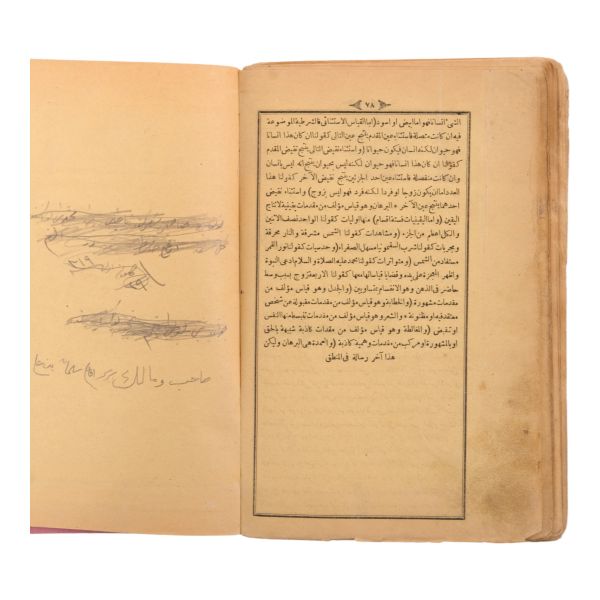 ٧٨
الشئ انسانا فهو اما ابيض او اسود (اما القياس الاستثنائى فالشرطية الموضوعة
فيه ان كانت متصلة فاستثناء عين المقدم ينتج عين التالى كقولنا ان كان هذا انسانا
فهو حيوان لكنه انسان فيكون حيوانا (و استثناء نقيض التالى ينتج نقيض المقدم
كقولنا ان كان هذا انسانا فهو حيوان لكنه ليس بحيوان ينتج انه ليس بانسان
وان كانت منفصلة فاستثناء عين احد الجزئين ينتج نقيض الآخر كقولنا هذا
العدد اما ان يكون زوجا او فردا لكنه فرد فهو ايس بزوج) واستثناء نقيض
احدهما ينتج عين الآخر * البرهان وهو قياس مؤلف من مقدمات يقينية لانتاج
اليقين (واما اليقينيات فستة اقسام) منها اوليات كقولنا الواحد نصف الاثنين
والكل اعظم من الجزء (و مشاهدات كقولنا الشمس مشرقة والنار محرقة
ومجربات كقولنا شرب السقمونيا مسهل الصفراء (وحدسيات كقولنا نور القمر
مستفاد من الشمس (ومتواترات كقولنا محمد عليه الصلاة و السلام ادعى النبوة
واظهر المعجزة على يده وقضايا قياساتها معها كقولنا الاربعة زوج بسبب وسط
حاضر فى الذهن وهو الانقسام بتساويين (والجدل وهو قياس مؤلف من
مقدمات مشهورة (والخطابة وهو قياس مؤلف من مقدمات مقبولة عن شخص
معتقد فيه او مظنونة * والشعر وهو قياس مؤلف من مقدمات تنبسط منها النفس
او تنقبض (والمغالطة وهو قياس مؤلف من مقدمات كاذبة شبيهة بالحق
او بالمشهورة او مركب من مقدمات وهمية كاذبة (والعمدة هى البرهان وليكن
هذا آخر رسالة فى المنطق
٣١٩
صاحب و مالك